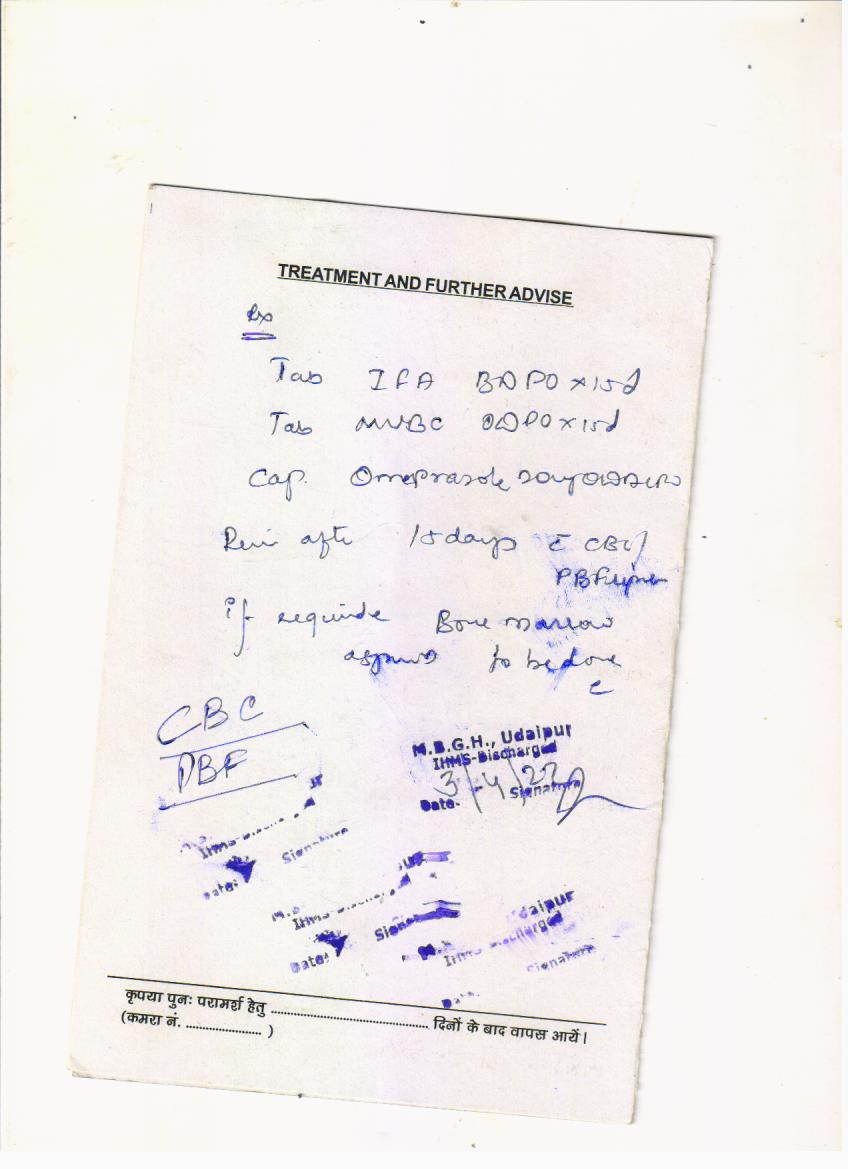 TREATMENT AND FURTHER ADVISE
Rx
Tab IFA BD PO x 15d
Tab MVBC OD PO x 15d
Cap. Omeprazole 20mg OD
after 15 days c̄ CBC/
PBF
if Bone marrow
to be done
c̄
CBC
PBF
M.B.G.H., Udaipur
IHMS-Discharged
3/4/22
Date: Signature
IHMS-
Date: Signature
IHMS-Discharged
Date: Signature
Udaipur
IHMS-Discharged
Signature
Date:
कृपया पुनः परामर्श हेतु .......................................... दिनों के बाद वापस आयें।
(कमरा नं. ...................... )